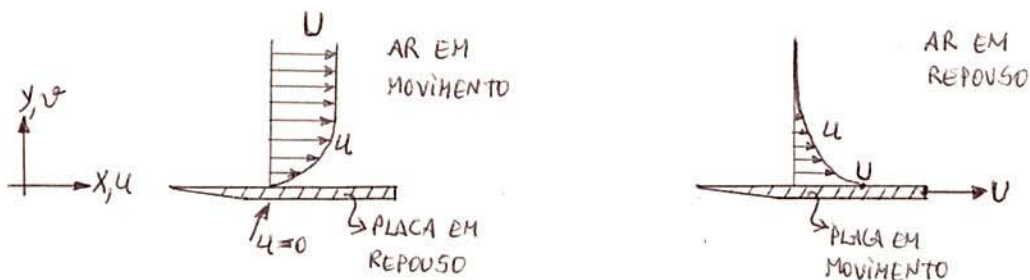 U
AR EM
MOVIMENTO
Y,v
u
X,u
u=0
PLACA EM
REPOUSO
AR EM
REPOUSO
u
U
U
PLACA EM
MOVIMENTO